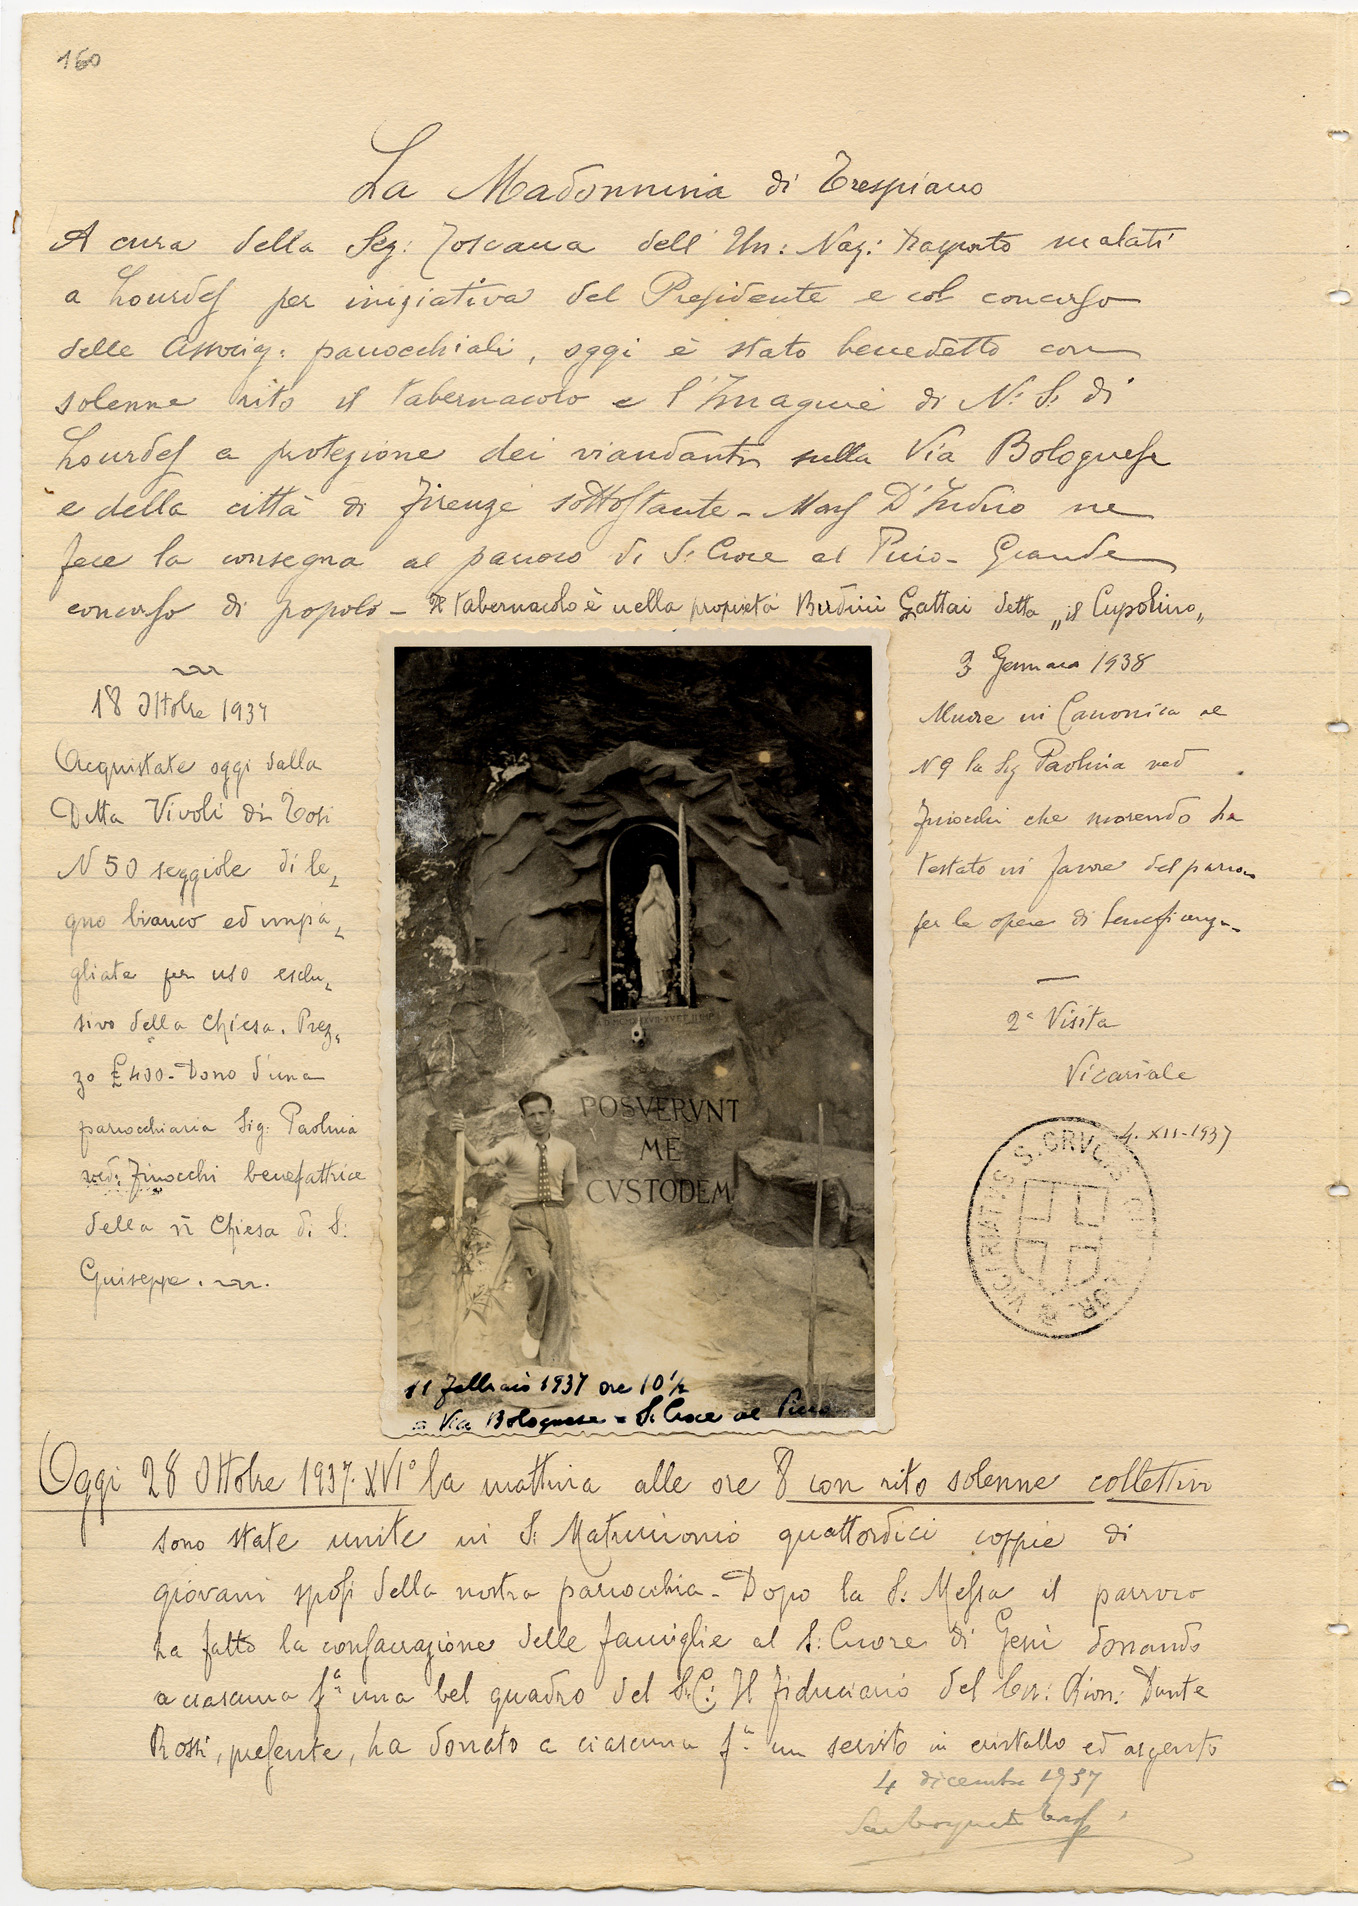 160
La Madonnina di Trespiano
A cura della Sez: Toscana dell'Un: Naz: trasporto malati
a Lourdes per iniziativa del Presidente e col concorso
delle Associaz: parrocchiali, oggi è stato benedetto con
solenne rito il tabernacolo e l'Imagine di N. S. di
Lourdes a protezione dei viandanti sulla Via Bolognese
e della città di Firenze sottostante - Mons D'Indico ne
fece la consegna al parroco di S. Croce al Pino - Grande
concorso di popolo - Il tabernacolo è nella proprietà Gattai detta „il Cupolino„
18 Ottobre 1937
Acquistate oggi dalla
Ditta Vivoli di Tosi
N 50 seggiole di le„
gno bianco ed impa„
gliate per uso esclu„
sivo della Chiesa. Prez„
zo £ 400 - Dono d'una
parrocchiana Sig: Paolina
ved: Finocchi benefattrice
della Chiesa di S:
Giuseppe.
3 Gennaio 1938
Muore in Canonica al
N 9 la Sig Paolina ved
Finocchi che morendo ha
testato in favore del parroco
per le opere di beneficenza -
2ª Visita
Vicariale
4. XII - 1937
VICARIATVS S. CRVCIS
A.D. MCMXXXVII
POSVERVNT
ME
CVSTODEM
11 Febbraio 1937 ore 10½
a Via Bolognese - S. Croce al Pino
Oggi 28 Ottobre 1937. XVI° la mattina alle ore 8 con rito solenne collettivo
sono state unite in S. Matrimonio quattordici coppie di
giovani sposi della nostra parrocchia - Dopo la S. Messa il parroco
ha fatto la consacrazione delle famiglie al S: Cuore di Gesù donando
a ciascuna fª una bel quadro del S.C: Il fiduciario del Gr: Rion: Dante
Rossi, presente, ha donato a ciascuna fª un servito in cristallo ed argento
4 dicembre 1937